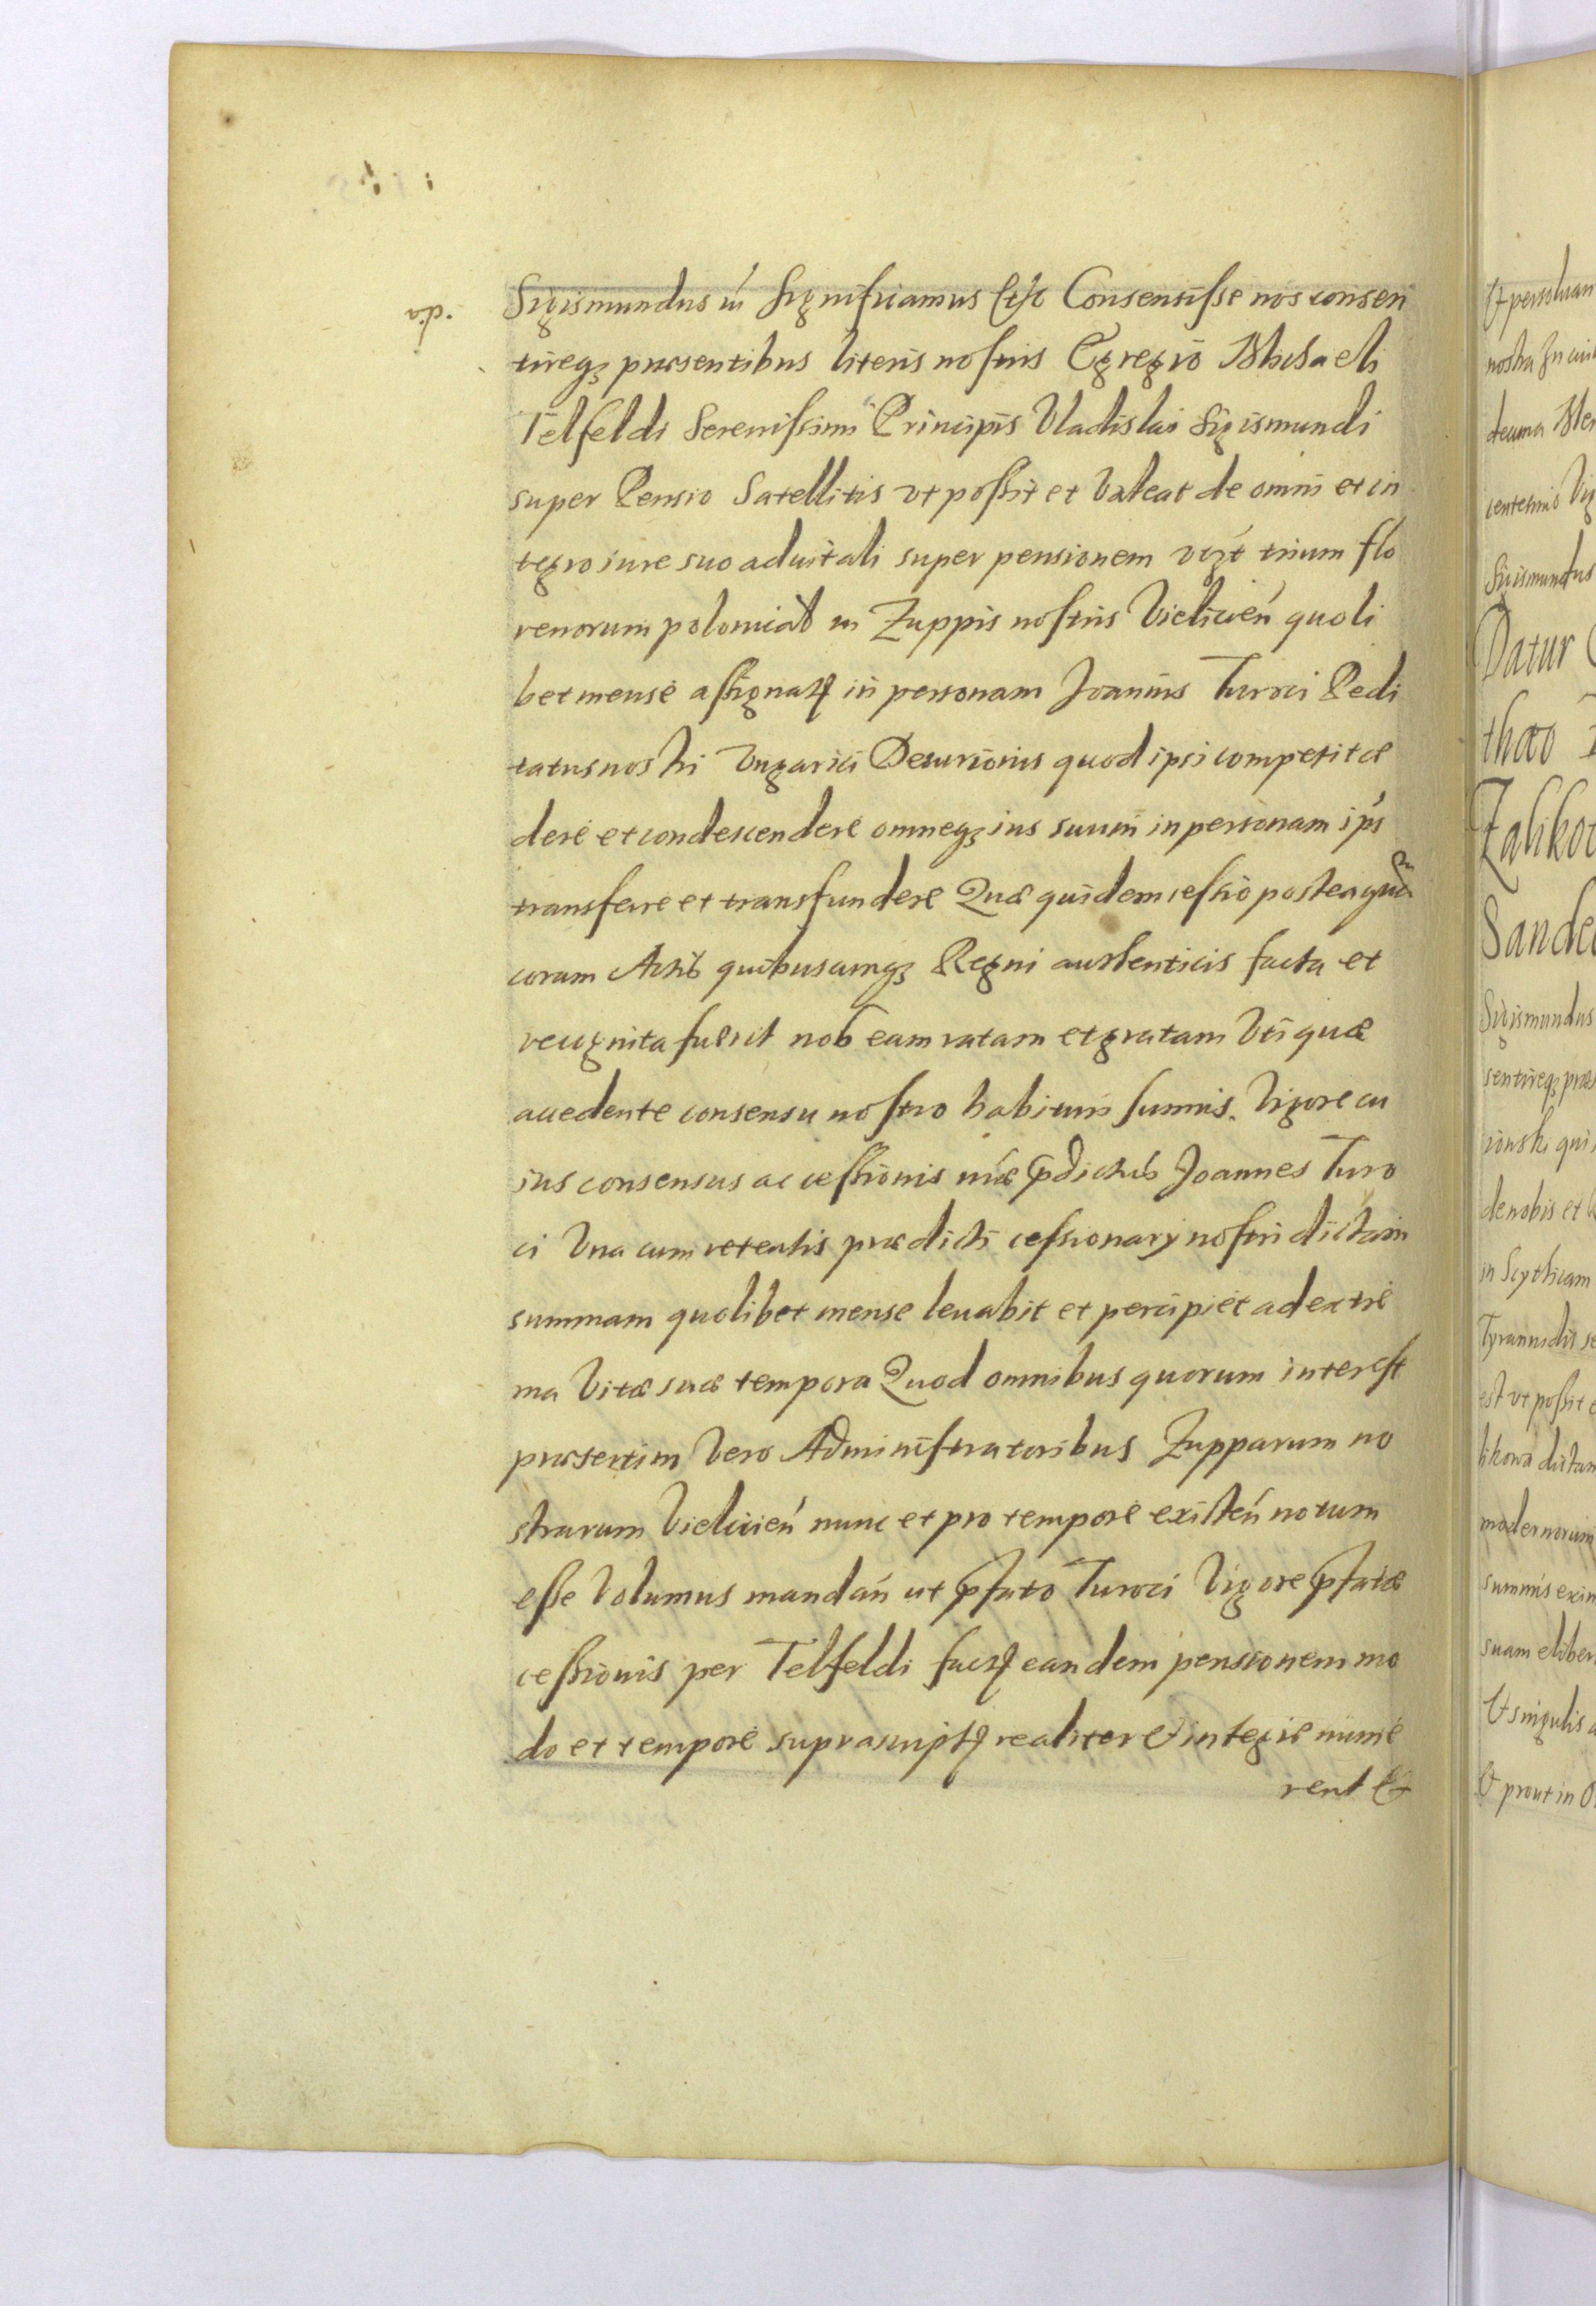 Sigismundus iii Significamus &c Consensisse nos consen
tireqz præsentibus literis nostris Egregio Michaeli
Telfeldi Serenissimi Principis Vladislai Sigismundi
super Pensio Satellitis vt possit et valeat de omni et in
tegro iure suo aduitali super pensionem trium flo
renorum polonical in Zuppis nostris Vielicień quoli
bet mense assignat in personam Joannis Turoci Pedi
tatus nostri Vngarici Decurionis quod ipsi competit ce
dere et condescendere omneqz ius suum in personam ips
transferre et transfundere Quæ quidem cessio posteaquā
coram Actis quibuscunqz Regni authenticis facta et
recognita fuerit nob eam ratam et gratam vti quæ
accedente consensu nostro habituri sumus. Vigore cu
ius consensus ac cessionis nræ pdictus Joannes Turo
ci Vna cum prædicti cessionarÿ nostri dictam
summam quolibet mense leuabit et percipiet ad extre
ma Vitæ suæ tempora Quod omnibus quorum interest
præsertim Vero Administratoribus Zupparum no
strarum Vielicień nunc et pro tempore existeń notum
esse Volumus mandań ut pfato Turoci Vigore pfatæ
cessionis per Telfeldi fact eandem pensionem mo
do et tempore suprascript realiter et integre nume
rent &
Et persoluan
nostra
Sigismundus
Datur
thæo
Zaliko
Sande
Sigismundus
sentireqz præs
ionski qui
de nobis et
in Scythicam
Tyrannidis se
est vt possit e
likowa dictam
modernorum
summis exim
suam eliber
Et singulis a
& prout in O